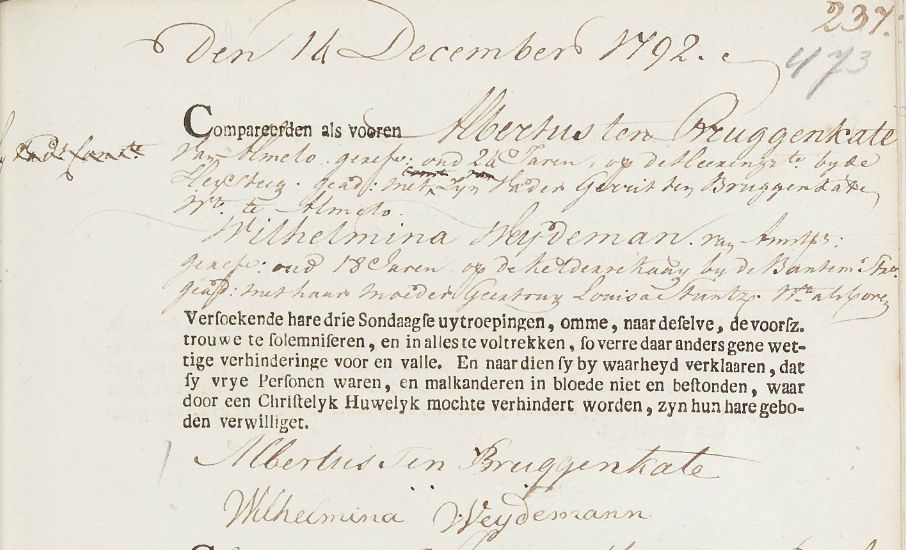 237.
473
Den 14 December 1792.
Compareerden als vooren Albertus ten Bruggenkate
van Almelo. geref: oud 24 Jaren, op de Heerengr.t by de
Com.t van
Heysteeg. gead: met zyn Vader Gerrit ten Bruggenkate
W.t te Almelo.
Wilhelmina Weydeman. van Amst:
geref: oud 18 Jaren op de by de
geas: met haar Moeder Geertruy Louisa W.t als voren
Versoekende hare drie Sondaagse uytroepingen, omme, naar deselve, de voorsz.
trouwe te solemniseren, en in alles te voltrekken, so verre daar anders gene wet-
tige verhinderinge voor en valle. En naardien sy by waarheyd verklaaren, dat
sy vrye Personen waren, en malkanderen in bloede niet en bestonden, waar
door een Christelyk Huwelyk mochte verhindert worden, zyn hun hare gebo-
den verwilliget.
Albertus Ten Bruggenkate
Wilhelmina Weydemann